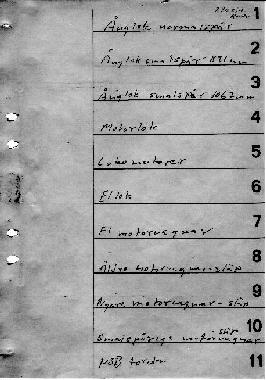 1
Ånglok normalspår
2
Ånglok smalspår 891 mm
3
Ånglok smalspår 1067 mm
4
Motorlok
5
Lokomotorer
6
Ellok
7
El motorvagnar
8
Äldre motorvagnar släp
9
Nyare motorvagnar - släp
10
släp
Smalspåriga motorvagnar
11
NSB